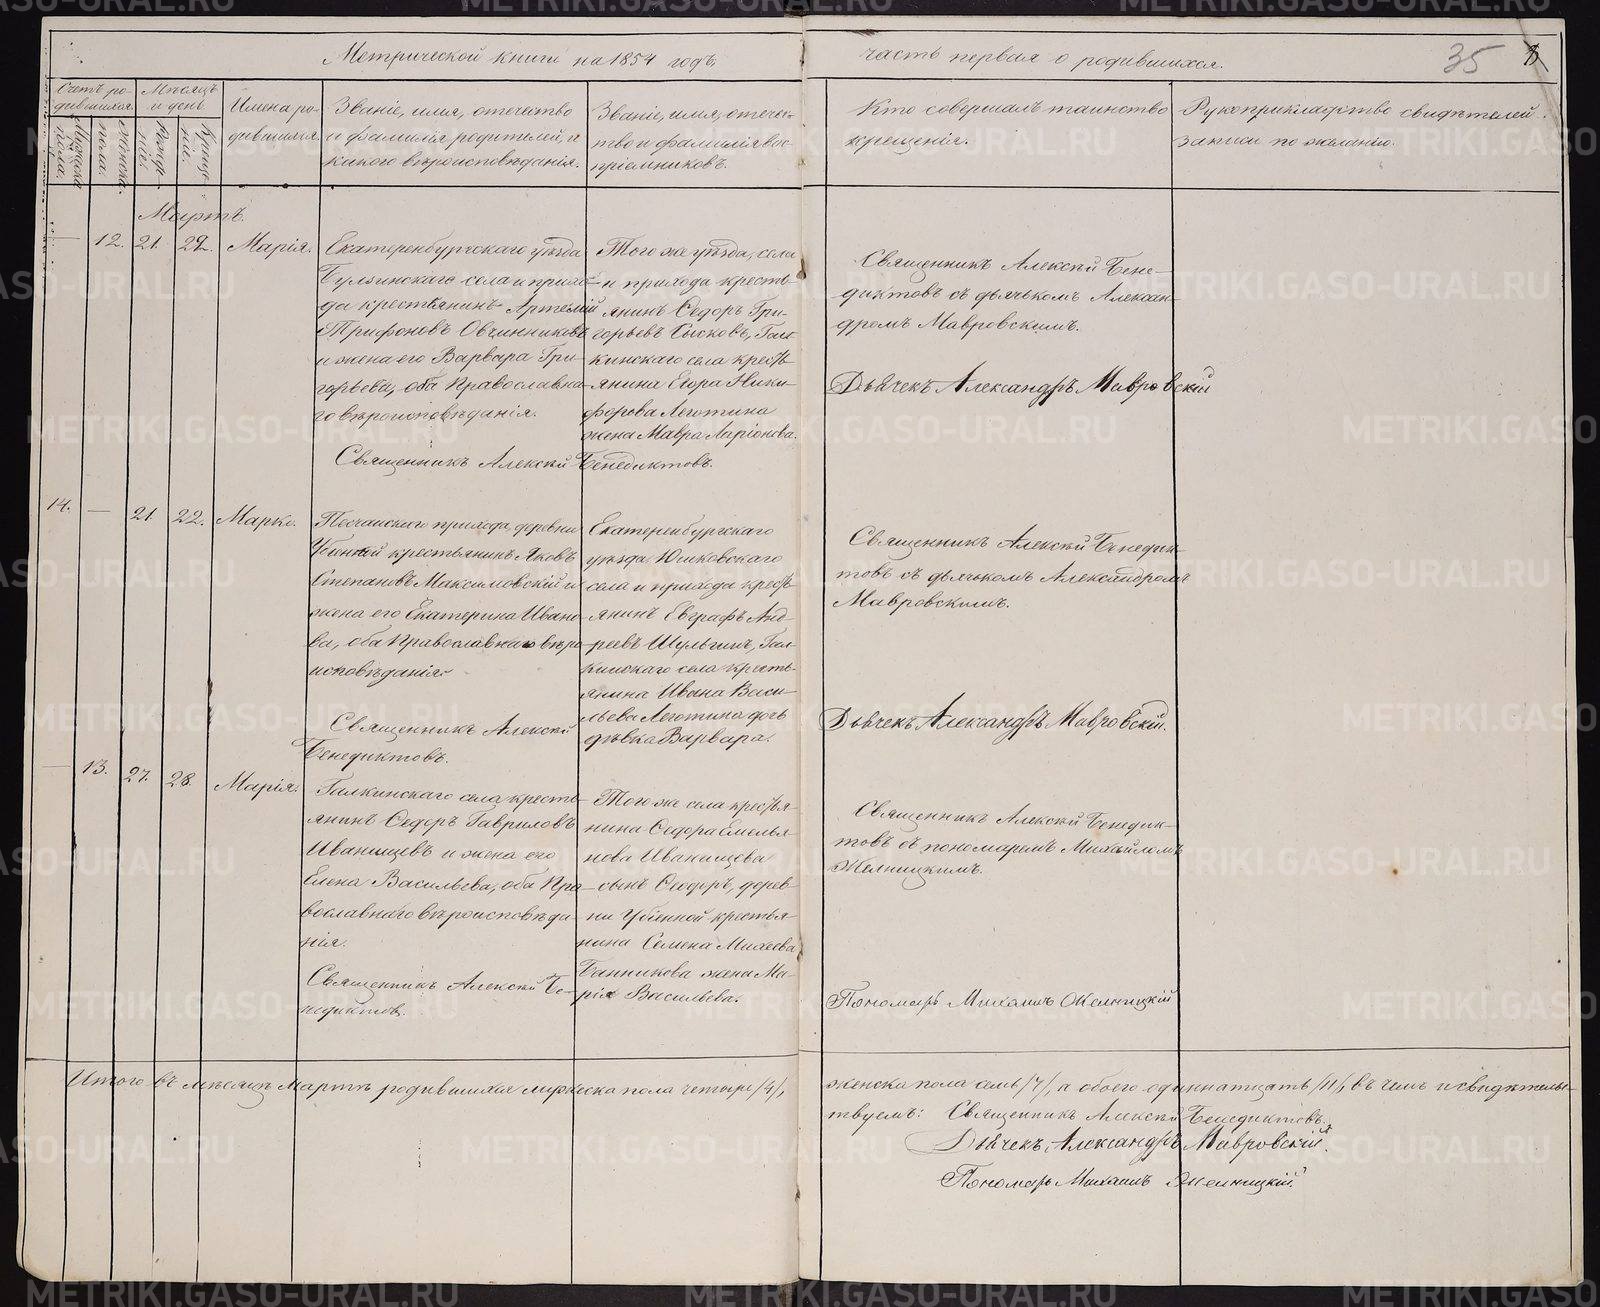 Метрической книги на 1854 годъ
часть первая о родившихся.
35
Счетъ ро-
дившихся.
Мужеска
пола.
Женска.
пола.
Мѣсяцъ
и день
Рожде-
нія.
Креще-
нія.
Имена ро-
дившихся.
Званіе, имя, отечество
и фамилія родителей, и
какого вѣроисповѣданія.
Званіе, имя, отече-
тво и фамилія вос-
пріемниковъ.
Кто совершалъ таинство
крещенія.
Рукоприкладство свидѣтелей
записи по желанію.
Мартъ.
— 12. 21. 22. Марія.
Екатеренбургскаго уѣзда
Булзинскаго села и прихо-
да крестьянинъ Артемій
Трифоновъ Овчинниковъ
и жена его Варвара Гри-
горьева, оба Православна-
го вѣроисповѣданія.
Священникъ Алексій Бенедиктовъ.
Того же уѣзда, села
и прихода кресть-
янинъ Ѳедоръ Гри-
горьевъ Сысковъ, Гал-
кинскаго села кресть-
янина Егора Ники-
форова Леготина
жена Мавра Ларіонова.
Священникъ Алексій Бене-
диктовъ съ дьячькомъ Алексан-
дромъ Мавровскимъ.
Дьячекъ Александръ Мавровскій
14. — 21. 22. Марко.
Песчанскаго прихода, деревни
Убіенной крестьянинъ Яковъ
Степановъ Максимовскій и
жена его Екатерина Ивано-
ва, оба Православнаго вѣро-
исповѣданія.
Священникъ Алексій
Бенедиктовъ.
Екатеренбургскаго
уѣзда Юшковскаго
села и прихода кресть-
янинъ Евграфъ Анд-
реевъ Шульгинъ, Гал-
кинскаго села кресть-
янина Ивана Васи-
льева Леготина дочь
дѣвка Варвара.
Священникъ Алексій Бенедик-
товъ съ дьячькомъ Александромъ
Мавровскимъ.
Дьячекъ Александръ Мавровскій.
— 13. 27. 28. Марія.
Галкинскаго села кресть-
янинъ Ѳедоръ Гавриловъ
Иванищевъ и жена его
Елена Васильева, оба Пра-
вославнаго вѣроисповѣда-
нія.
Священникъ Алексій Бе-
недиктовъ.
Того же села крестья-
нина Ѳедора Емелья-
нова Иванищева
сынъ Ѳедоръ, дерев-
ни Убіенной крестья-
нина Семена Михеева
Банникова жена Ма-
рія Васильева.
Священникъ Алексій Бенедик-
товъ съ пономаремъ Михаиломъ
Желницкимъ.
Пономарь Михаилъ Желницкій
Итого въ мѣсяцѣ Мартѣ родившихся мужеска пола четыре /4/,
женска пола семь /7/, а обоего одиннатцать /11/, въ чемъ и свидѣтель-
твуемъ: Священникъ Алексій Бенедиктовъ.
Дьячекъ Александръ Мавровскій.
Пономарь Михаилъ Желницкій.
METRIKI.GASO-URAL.RU